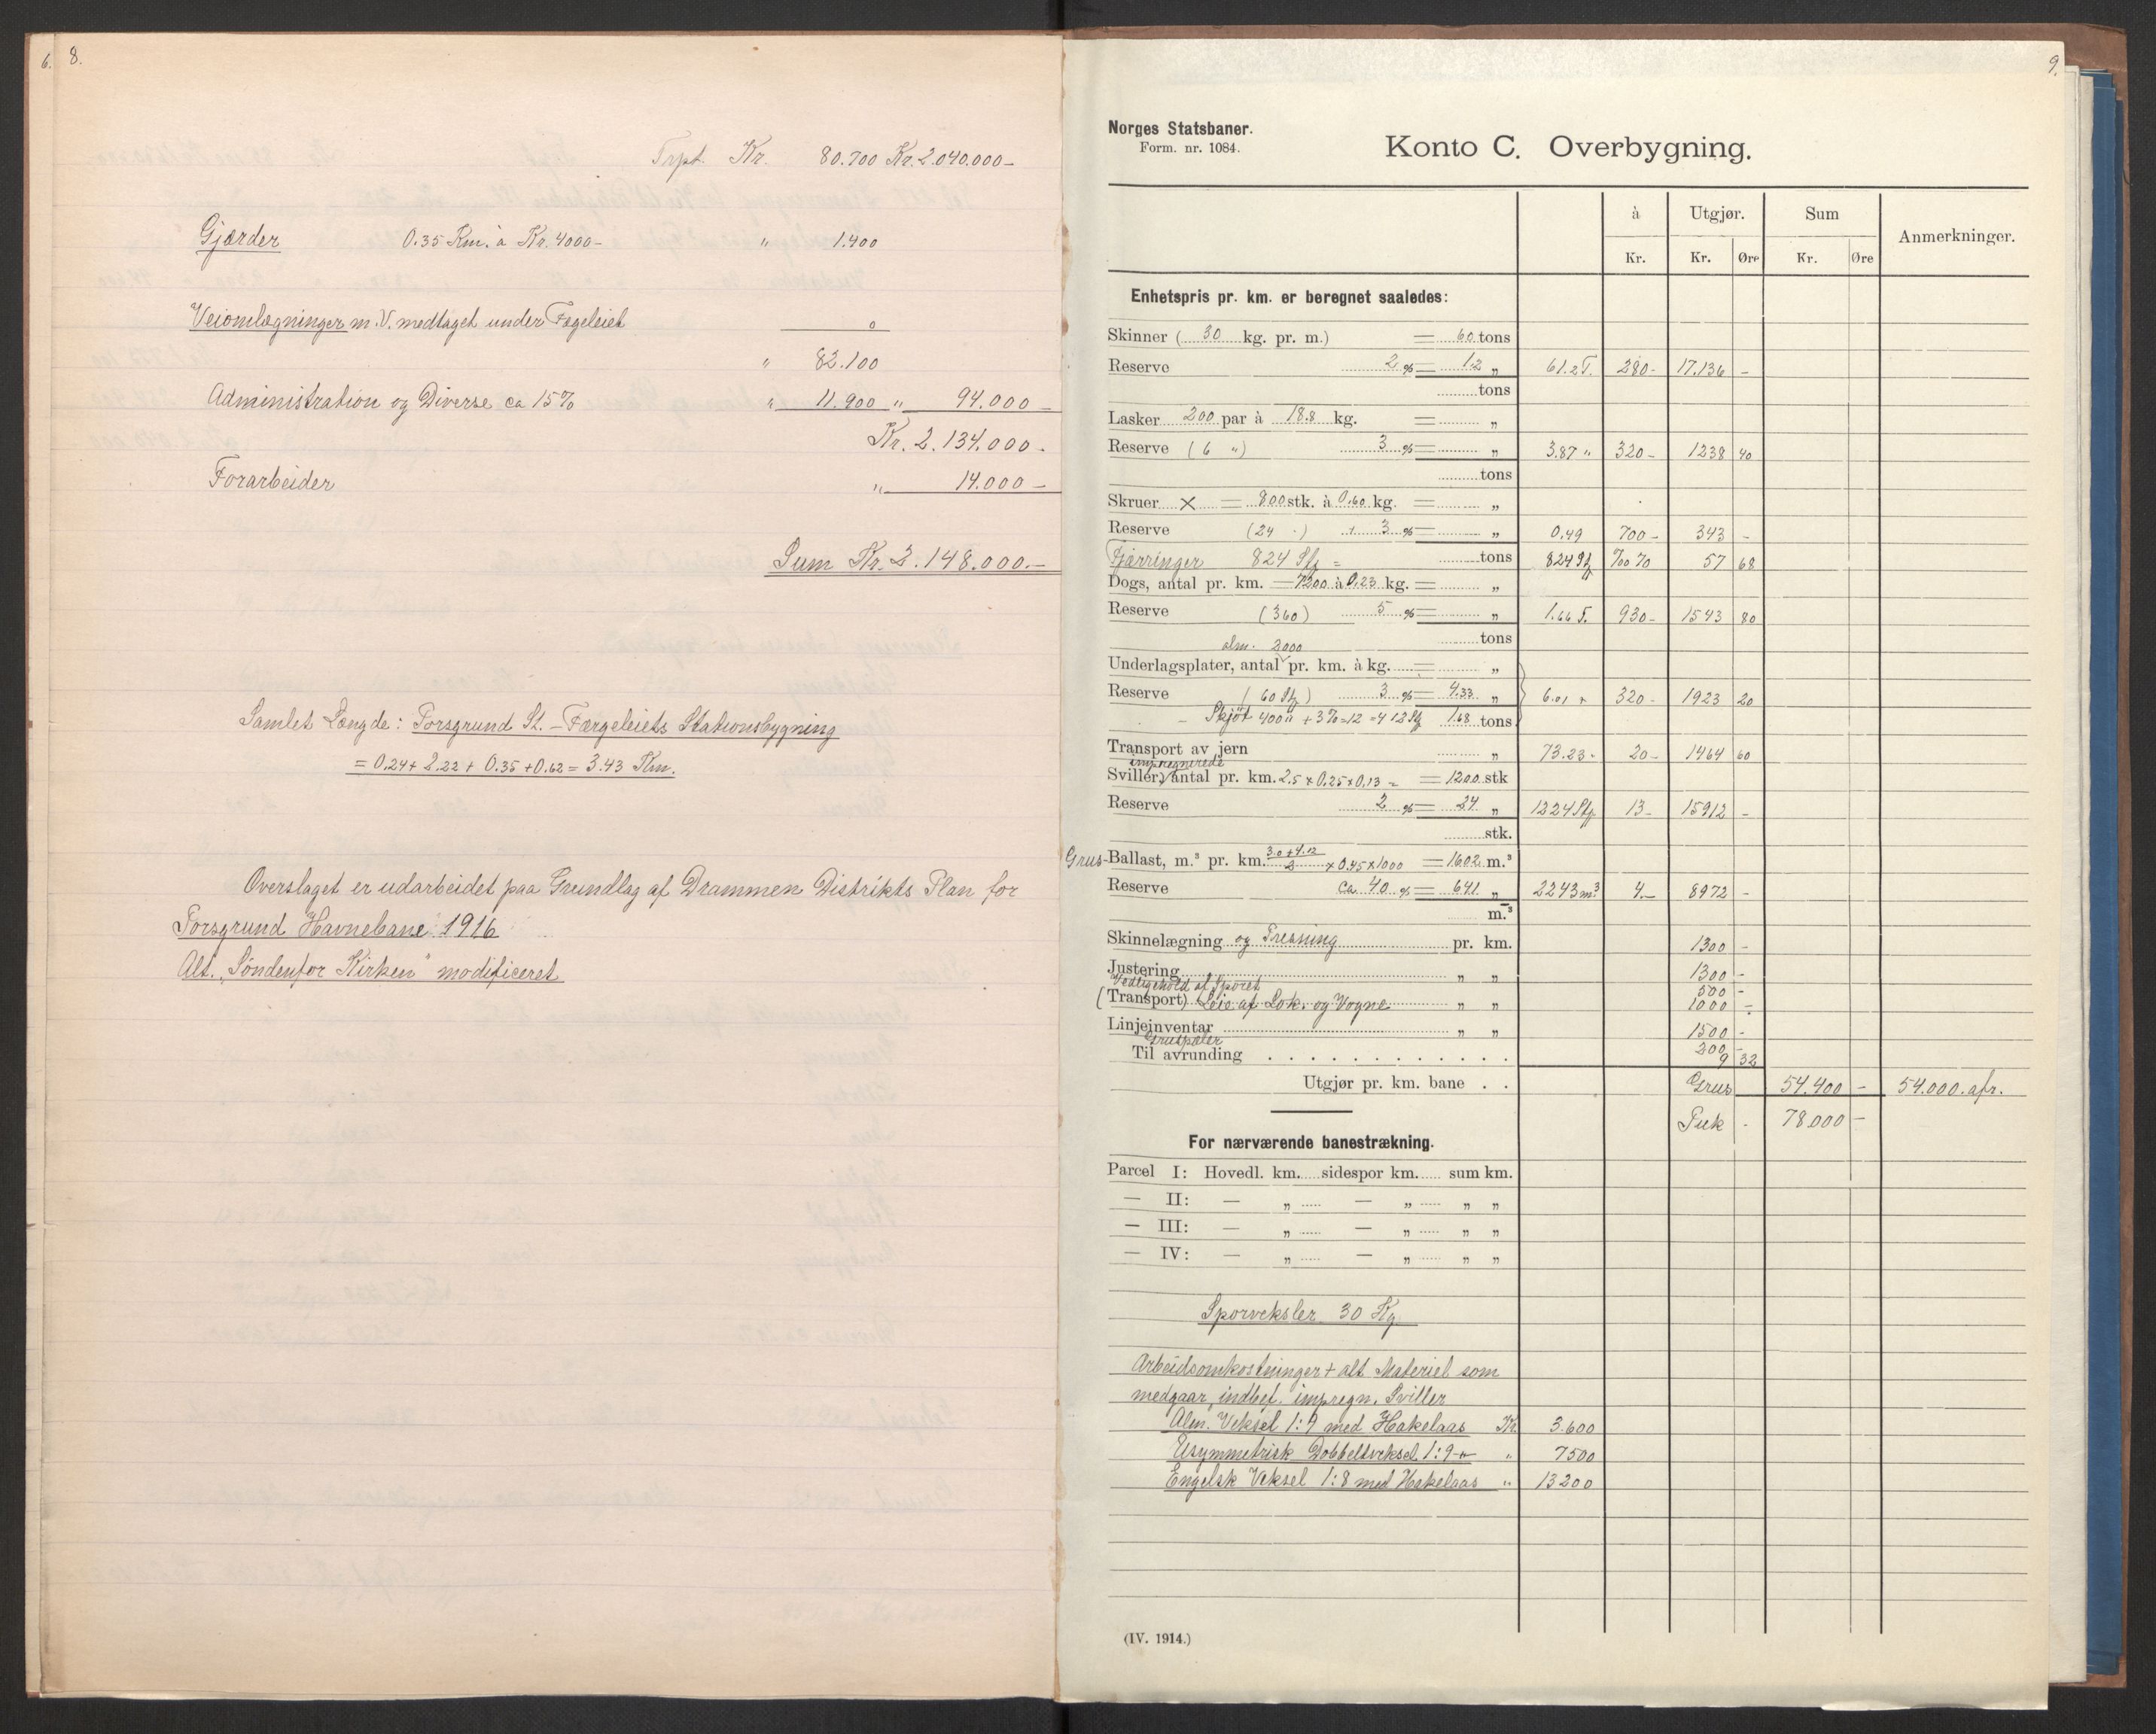 6. 8.
Trpt. Kr. 80.700 Kr. 2.040.000 –
Gjærder 0.35 Km. à Kr. 4000 – " 1.400
Veiomlægninger m.V. medtaget under Fægeleiet 0
" 82.100
Administration og Diverse ca 15% " 11.900 " 94.000 –
Kr. 2.134.000 –
Forarbeider " 14.000 –
Sum Kr. 2.148.000. –
Samlet Længde: Porsgrund St. – Færgeleiets Stationsbygning
= 0.24 + 2.22 + 0.35 + 0.62 = 3.43 Km.
Overslaget er udarbeidet paa Grundlag af Drammen Distrikts Plan for
Porsgrund Havnebane 1916
Alt. „Søndenfor Kirken" modificeret
9.
Norges Statsbaner.
Form. nr. 1084.
Konto C. Overbygning.
à Utgjør. Sum Anmerkninger.
Kr. Kr. Øre Kr. Øre
Enhetspris pr. km. er beregnet saaledes:
Skinner ( 30 kg. pr. m.) = 60 tons
Reserve 2 % = 1.2 „ 61.2 T. 280 – 17.136 –
tons
Lasker 200 par à 18.8 kg. = „
Reserve ( 6 " ) 3 % = „ 3.87 " 320 – 1238 40
tons
Skruer × = 800 stk. à 0.60 kg. = „
Reserve (24 ) + 3 % = „ 0.49 700 – 343 –
Fjærringer 824 Stk = tons 824 Stk %00 70 57 68
Dogs, antal pr. km. = 7200 à 0.23 kg. = „
Reserve (360) 5 % = „ 1.66 T. 930 – 1543 80
tons
alm. 2000
Underlagsplater, antal pr. km. à kg. = „
Reserve (60 Stk) 3 % = 4.33 „ 6.01 " 320 – 1923 20
– Skjøt 400 + 3% = 12 = 412 Stk 1.68 tons
Transport av jern „ 73.23 " 20 – 1464 60
impregnerede
Sviller, antal pr. km. 2.5 × 0.25 × 0.13 = = 1200 stk
Reserve 2 % = 24 „ 1224 Stk 13 – 15912 –
stk.
Grus-Ballast, m.³ pr. km. 3.0 + 4.12 / 2 × 0.45 × 1000 = 1602 m.³
Reserve ca 40 % = 641 „ 2243 m³ 4. – 8972 –
m.³
Skinnelægning og Presning pr. km. 1300 –
Justering „ „ 1300 –
Vedligehold af Sporet 500 –
(Transport) Leie af Lok. og Vogne „ „ 1000 –
Linjeinventar „ „ 1500 –
Gruspæler 200 –
Til avrunding 9 32
Utgjør pr. km. bane . . Grus 54.400 – 54.000. afr.
Puk – 78.000 –
For nærværende banestrækning.
Parcel I: Hovedl. km. sidespor km. sum km.
— II: — „ — „ „ „
— III: — „ — „ „ „
— IV: — „ — „ „ „
Sporveksler 30 Kg.
Arbeidsomkostninger + alt Materiel som
medgaar, indbef. impregn. Sviller
Alm. Veksel 1:9 med Hakelaas Kr. 3.600
Usymmetrisk Dobbeltveksel 1:9 – " – " 7500
Engelsk Veksel 1:8 med Hakelaas " 13200
(IV. 1914.)